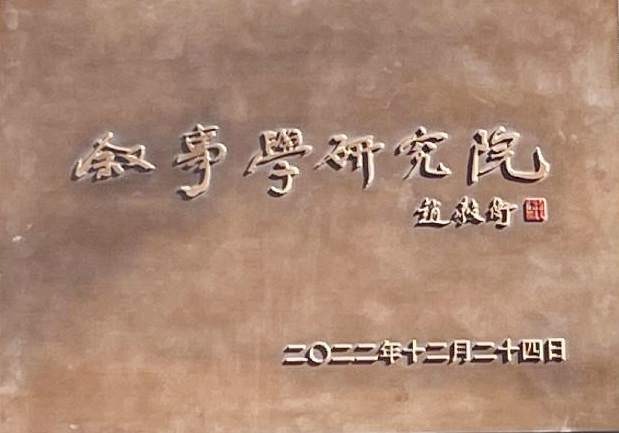 叙事學研究院
二〇二二年十二月二十四日